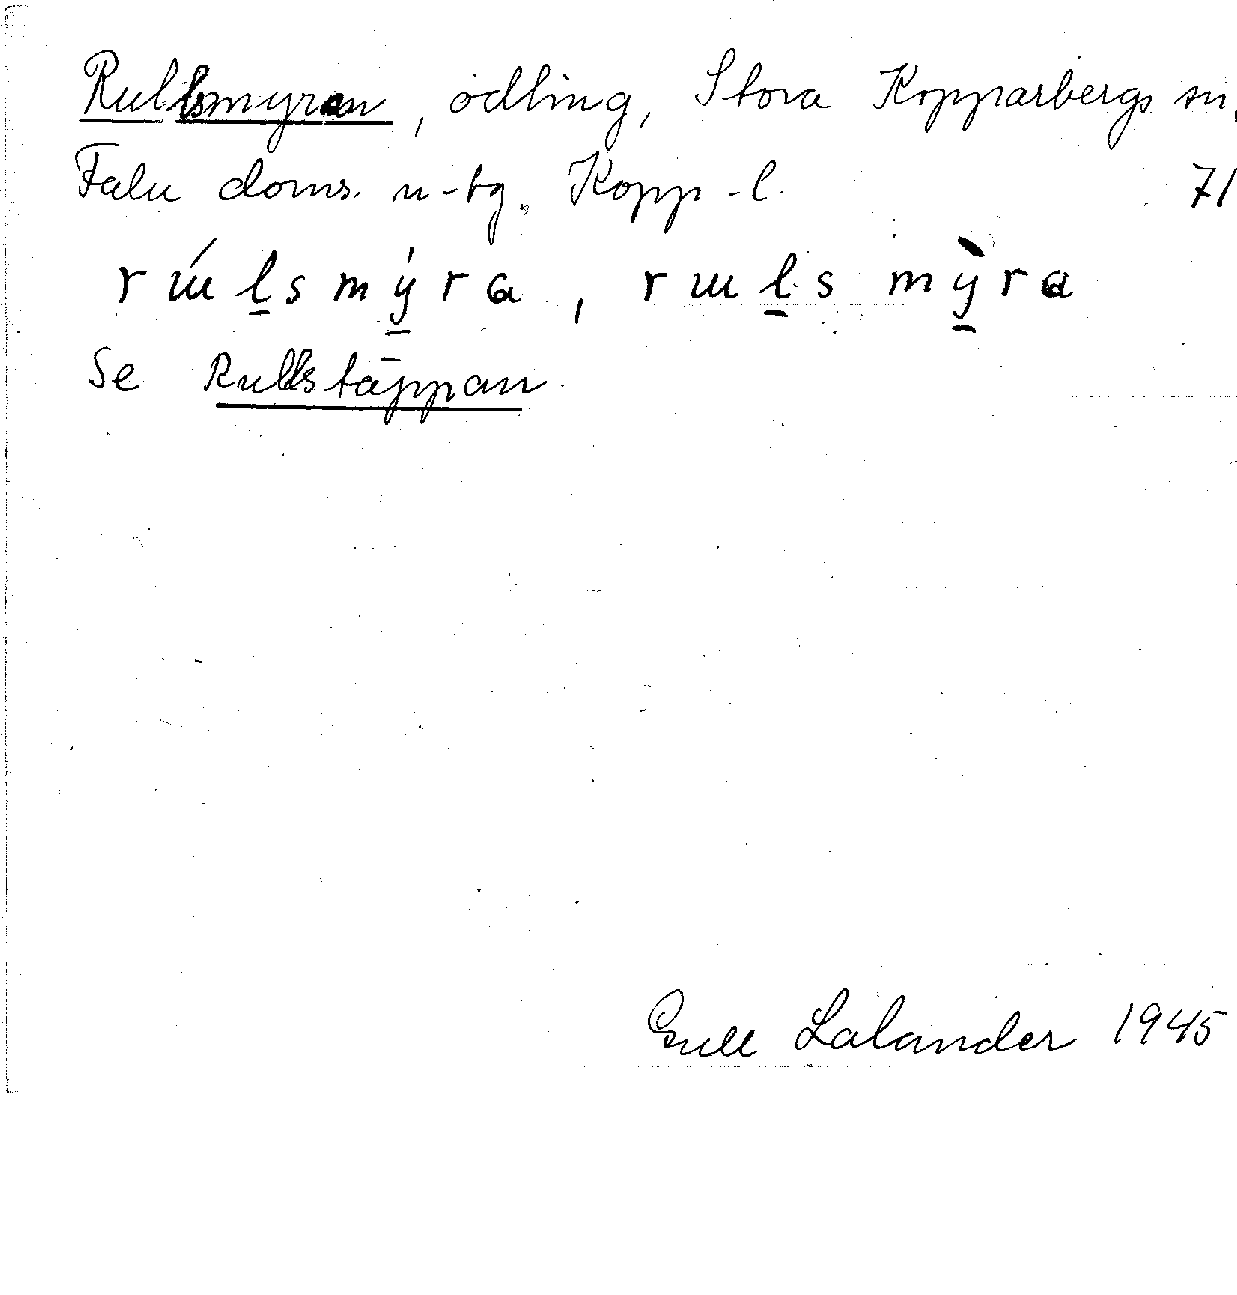 Rullsmyran, odling, Stora Kopparbergs sn,
Falu doms. n-tg. Kopp-l. 71
rɯ́l̲smý̲ra, rɯl̲s mỳ̲ra
Se Rullstäppan.
Gull Lalander 1945